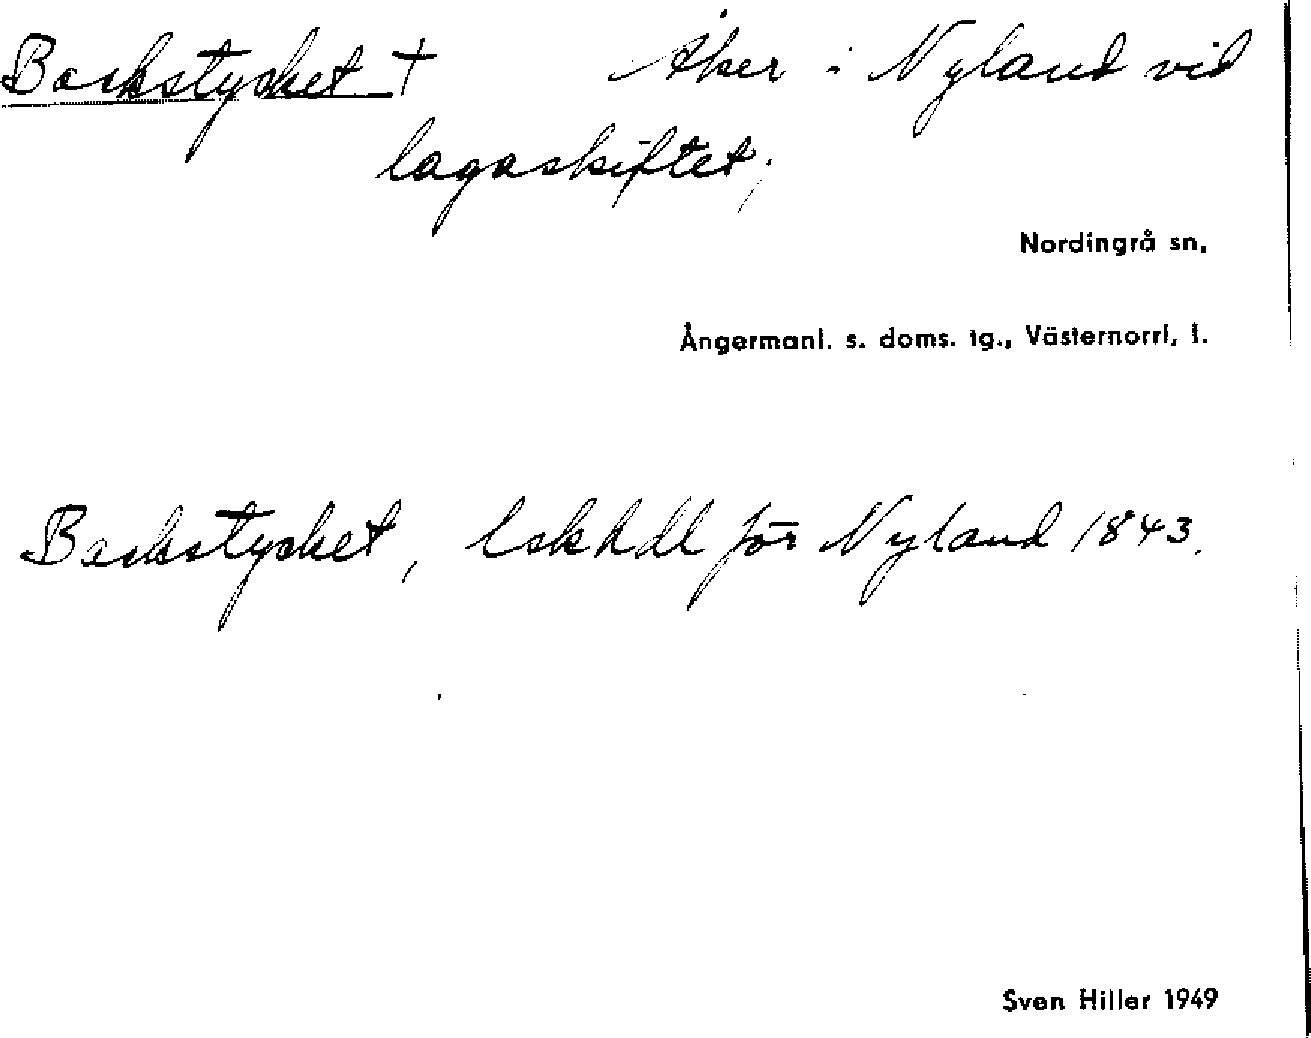 Backstycket † Åker i Nyland vid
lagaskiftet,
Nordingrå sn.
Ångermanl. s. doms. tg., Västernorrl. l.
Backstycket, lskhdl för Nyland 1843.
Sven Hiller 1949